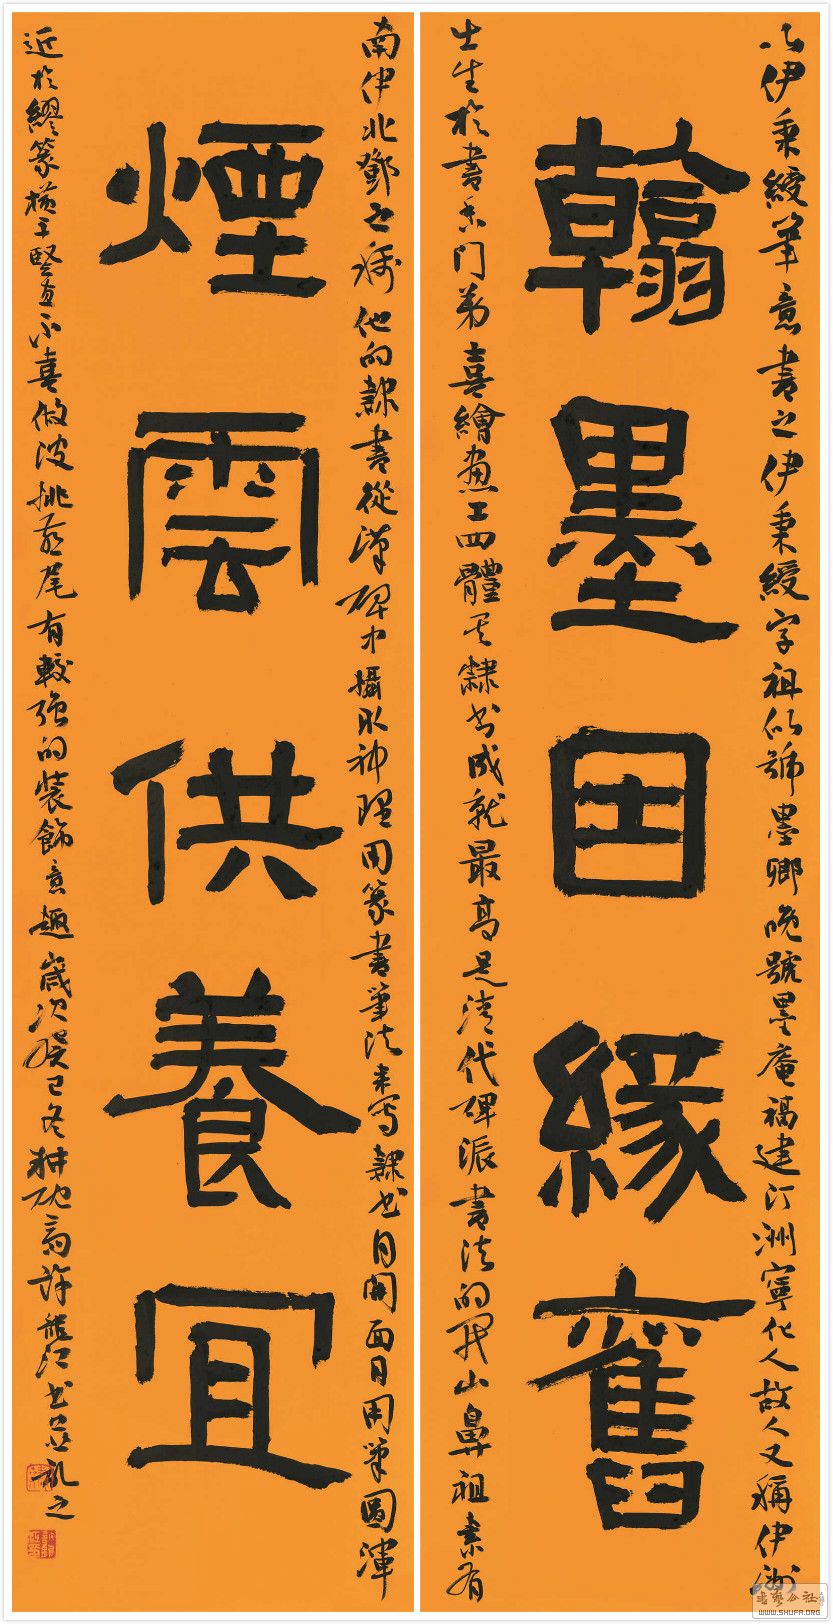 以伊秉綬筆意書之伊秉綬字祖似號墨卿晚號墨庵福建汀洲寧化人故人又稱伊汀洲
翰墨因緣舊
出生於書香门弟喜繪畫工四體其隸书成就最高是清代碑派書法的开山鼻祖素有
南伊北鄧之稱他的隸書從漢碑中攝取神理用篆書筆法来写隸书自開面目用筆圆渾
煙雲供養宜
近於繆篆横平竪直不喜做波挑燕尾有較强的装飾意趣歲次癸巳冬耕石斋許龍江书並记之
书艺公社
WWW.SHUFA.ORG